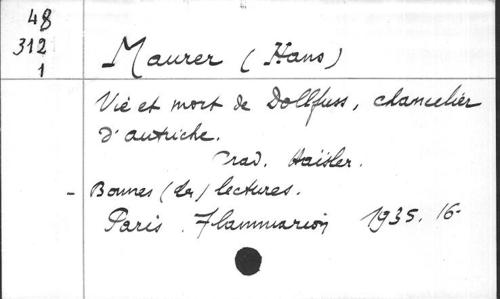 48
312
1
Maurer (Hans)
Vie et mort de Dollfuss, chancelier
d'autriche.
Trad. Haisler.
- Bonnes (les) lectures.
Paris. Flammarion 1935. 16-